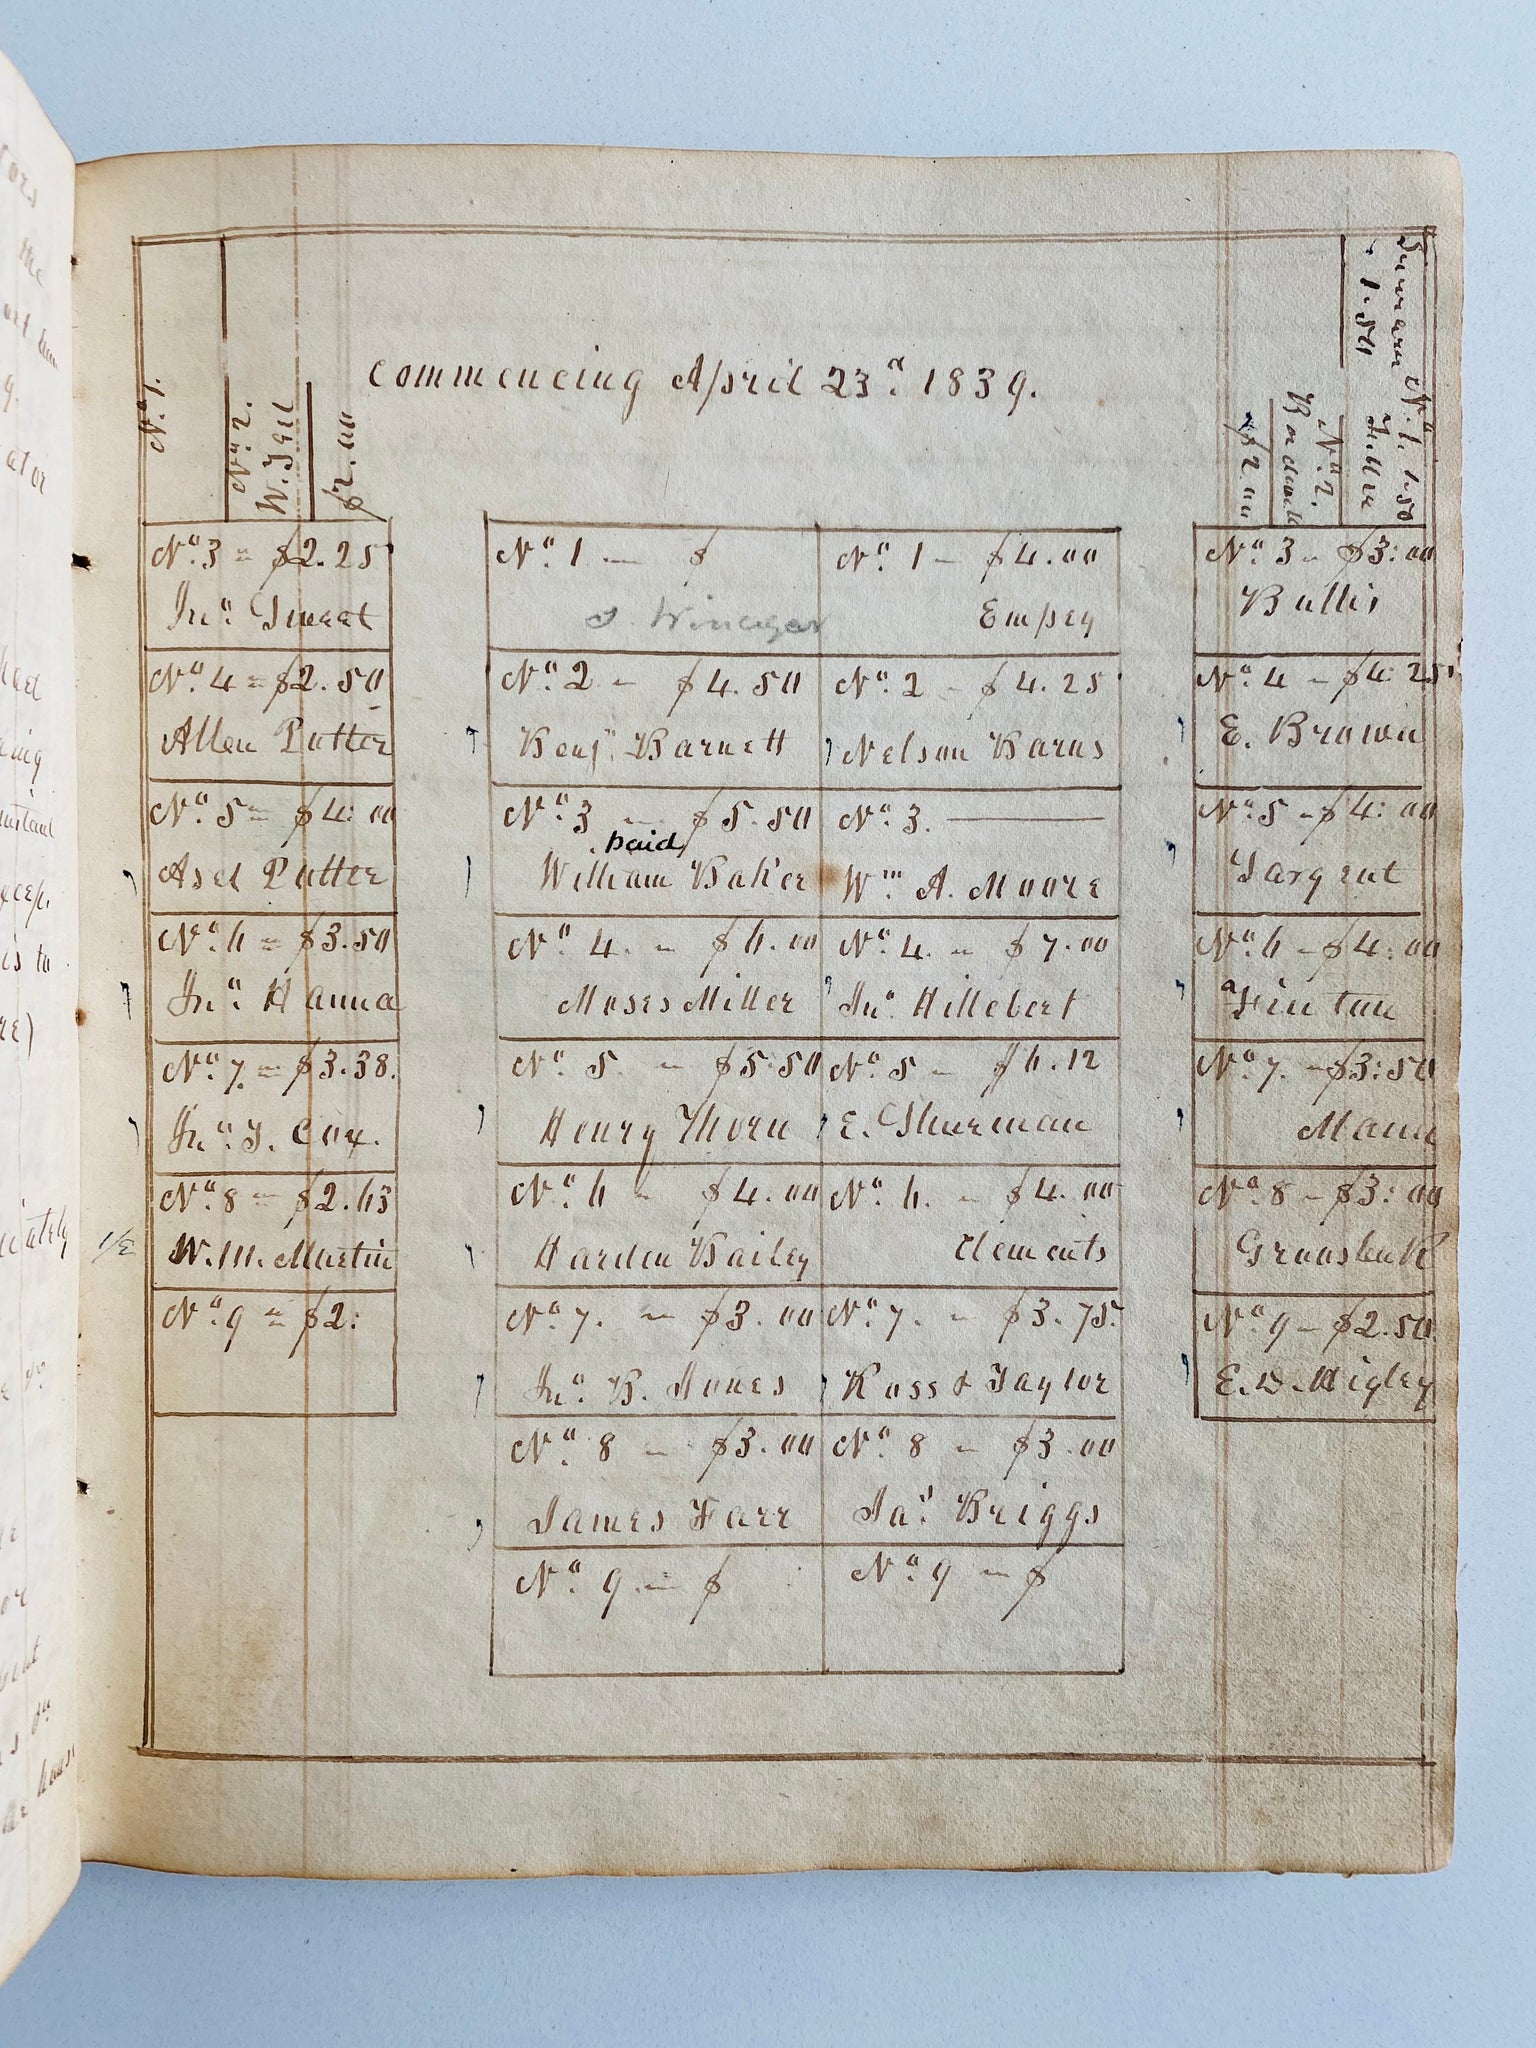 Commencing April 23.d 1839.
No. 1.
No. 2.
$2.00
No. 3 = $2.25
Jno. Sweet
No. 4 = $2.50
Allen Potter
No. 5 = $4:00
Asel Potter
No. 6 = $3.50
Jno. Hanna
No. 7. = $3.38.
Jno. T. Cox.
No. 8 = $2.63
W. M. Martin
No. 9 = $2:
No. 1 — $
J. Winegar
No. 2 - $4.50
Benj. Barnett
No. 3 - $5.50
paid
William Baker
No. 4. - $6.00
Moses Miller
No. 5. - $5.50
Henry Thorn
No. 6 - $4.00
Harden Bailey
No. 7. - $3.00
Jno. B. Jones
No. 8 - $3.00
James Farr
No. 9. - $
No. 1 - $4.00
Empey
No. 2 - $4.25
Nelson Barns
No. 3. ———
Wm A. Moore
No. 4. - $7.00
Jno. Hillebert
No. 5 - $6.12
E. Shurman
No. 6. - $4.00
Clements
No. 7. - $3.75.
Ross & Taylor
No. 8 - $3.00
Jas. Briggs
No. 9 - $
No. 1. 1.50
Fuller
1.50
No. 2.
$2.00
No. 3 - $3:00
Bullis
No. 4 - $4:25
E. Brown
No. 5 - $4:00
Sargent
No. 6 - $4:00
Finton
No. 7. - $3:50
Mann
No. 8 - $3:00
Groosbeck
No. 9 - $2.50
E. D. Higley